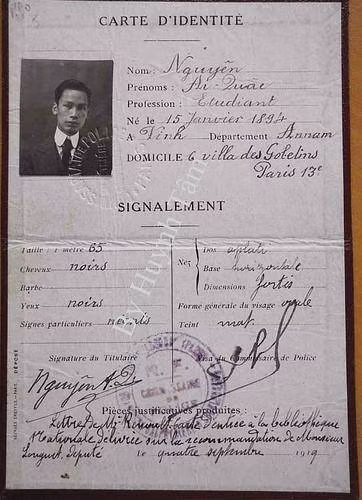 CARTE D'IDENTITÉ
Nom: Nguyên
Prénoms: Ái-Quâc
Profession: Etudiant
Né le 15 Janvier 1894
A Vinh Département Annam
DOMICILE 6 villa des Gobelins
Paris 13e
SIGNALEMENT
Taille: 1 mètre 65
Cheveux noirs
Barbe
Yeux noirs
Signes particuliers
Nez
Dos aplati
Base horizontale
Dimensions fortes
Forme générale du visage ovale
Teint mat.
Signature du Titulaire
Visa du Commissaire de Police
Nguyên A Q
Pièces justificatives produites:
Lettre de Mr Renoult, carte d'entrée à la bibliothèque
Nationale délivrée sur la recommandation de Monsieur
Longuet, député Le quatre septembre 1919
By Huynh Tam